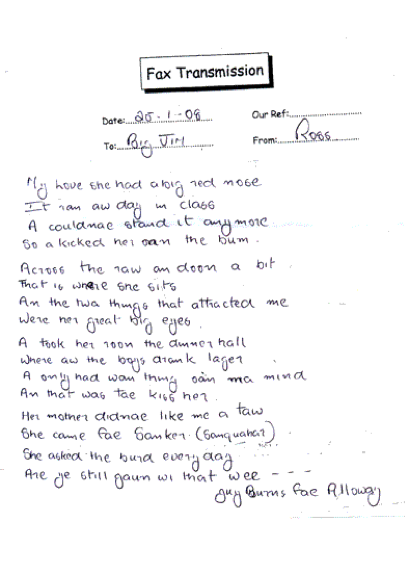 Fax Transmission
Date: 25-1-08 Our Ref:
To: Big Jim From: Ross
My love she had a big red nose
It ran aw day in class
A couldnae stand it any more
So a kicked her oan the bum.
Across the raw an doon a bit
That is where she sits
An the twa things that attracted me
Were her great big eyes.
A took her roon the dinner hall
Where aw the boys drank lager
A only had wan thing oan ma mind
An that was tae kiss her.
Her mother didnae like me a taw
She came fae Sanker. (Sanquhar)
She asked the burd every day
Are ye still gaun wi that wee - - -
Guy Burns fae Alloway